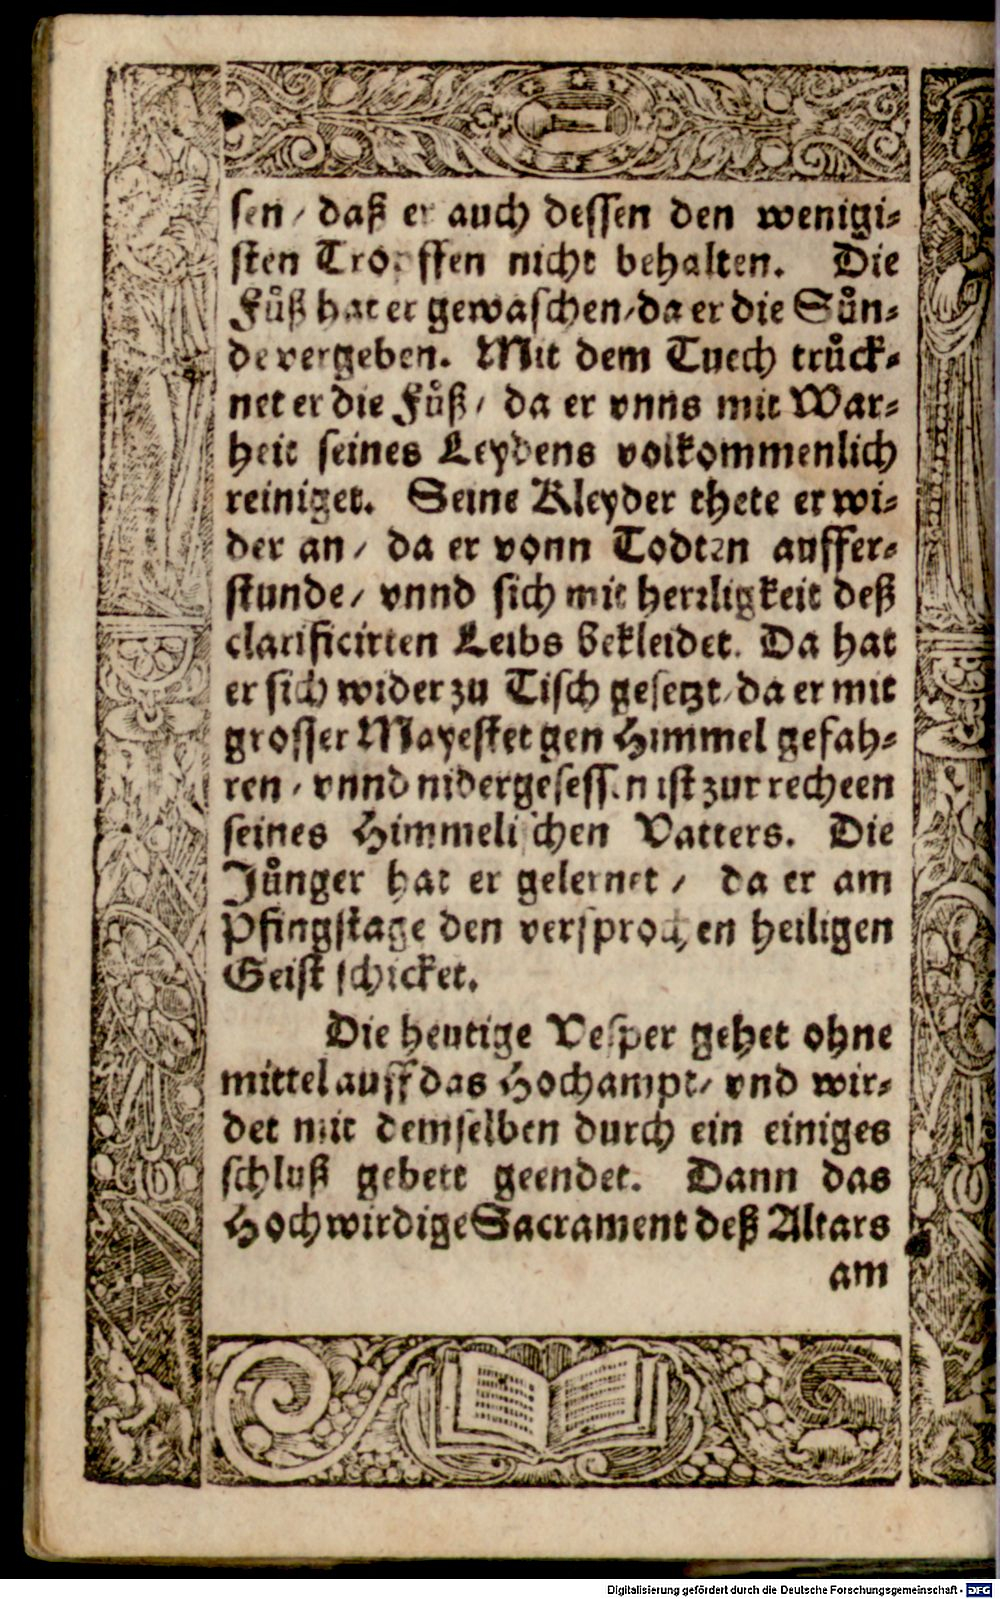 sen / daß er auch dessen den wenigi⸗
sten Tropffen nicht behalten. Die
Fuͤß hat er gewaschen / da er die Suͤn⸗
de vergeben. Mit dem Tuech truͤck⸗
net er die Fuͤß / da er vnns mit War⸗
heit seines Leydens volkommenlich
reiniget. Seine Kleyder thete er wi⸗
der an / da er vonn Todten auffer⸗
stunde / vnnd sich mit herꝛligkeit deß
clarificirten Leibs bekleidet. Da hat
er sich wider zu Tisch gesetzt / da er mit
grosser Mayestet gen Himmel gefah⸗
ren / vnnd nidergesessen ist zur recheen
seines Himmelischen Vatters. Die
Juͤnger hat er gelernet / da er am
Pfingstage den versprochen heiligen
Geist schicket.
Die heutige Vesper gehet ohne
mittel auff das Hochampt / vnd wir⸗
det mit demselben durch ein einiges
schluß gebett geendet. Dann das
Hochwirdige Sacrament deß Altars
am
Digitalisierung gefördert durch die Deutsche Forschungsgemeinschaft - DFG